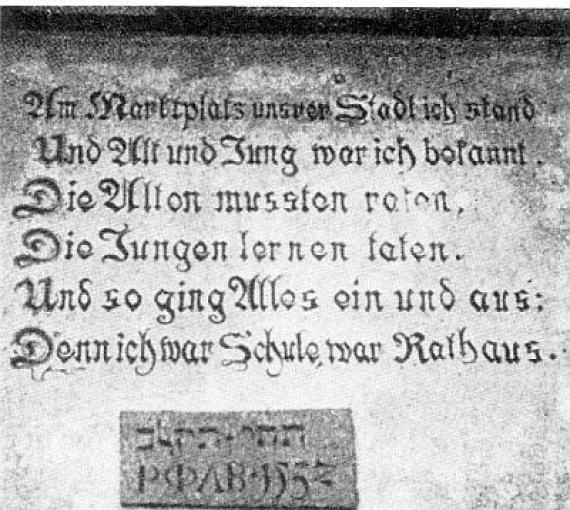 Am Marktplatz unsrer Stadt ich stand
Und Alt und Jung war ich bekannt.
Die Alten mussten raten,
Die Jungen lernen taten.
Und so ging Alles ein und aus:
Denn ich war Schule, war Rathaus.
ΡΦΛΒ·1532